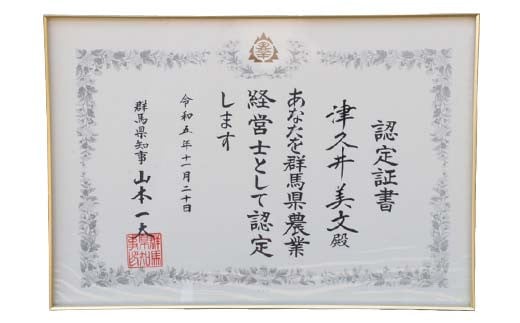 認定証書
津久井美文殿
あなたを群馬県農業
経営士として認定
します
令和五年十一月二十日
群馬県知事 山本一太